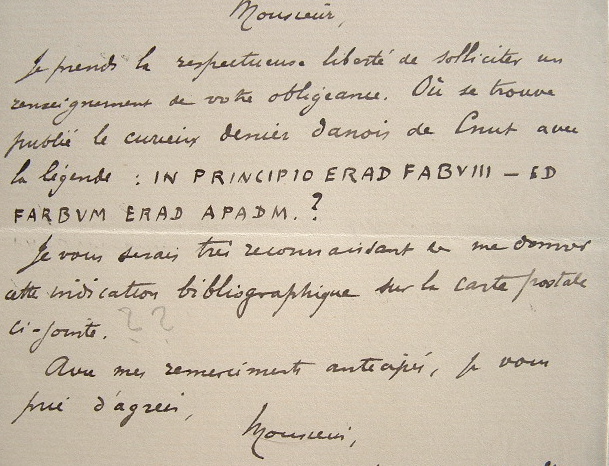 Monsieur,
Je prends la respectueuse liberté de solliciter un
renseignement de votre obligeance. Où se trouve
publié le curieux denier danois de Cnut avec
la légende : IN PRINCIPIO ERAD FABVIII — ED
FARBVM ERAD APADM. ?
Je vous serais très reconnaissant de me donner
cette indication bibliographique sur la carte postale
ci-jointe. ??
Avec mes remerciments anticipés, je vous
prie d'agréer,
Monsieur,